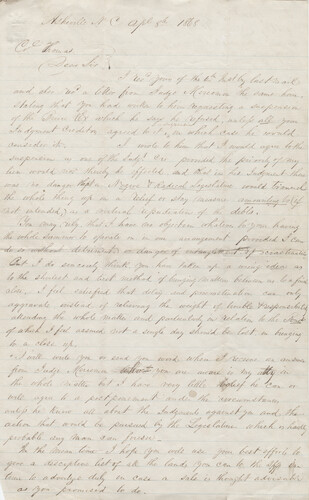 Asheville N.C. Apl 5th 1868
Dear Sir
I recd yours of the 1st Inst by last mail
and also recd a letter from Judge the same
stating that you had written to him requesting a suspension
of the which he says he refused, unless all your
Judgment Creditors agreed to it, in which case he would
consider it. I wrote to him that I would agree to the
suspension as one of the Judgt Crs provided the priority of my
lien would not thereby be affected and that in his Judgment there
was no danger that a Negro & Radical Legislature would
the whole thing up in a Relief or stay measure
not intended, in a virtual repudiation of the debts.
You may rely that I have no objection whatever to your having
the full time to operate in or in any arrangement provided I can
do so without detriment or danger of
But I do sincerely think you have taken up a wrong idea as
to the shortest and best method of bringing matters between us to a
close. I feel satisfied that delay and procrastination can only
aggravate instead of relieving the weight of trouble & responsibility
attending the whole matter and particularly in relation to the
of which I feel assured not a single day should be lost in bringing
to a close up.
I will write you or send you word when I receive an answer
from Judge you are aware is my in
the whole matter but I have very little belief he can or
will agree to a postponement under the circumstances
unless he knew all about the Judgments against you and the
action that would be pursued by the Legislature which is hardly
probable any man can foresee.
In the mean time I hope you will use your best efforts to
give a descriptive list of all the lands you can to the in
time to advertise duly in case a sale is thought advisable
as you promised to do.